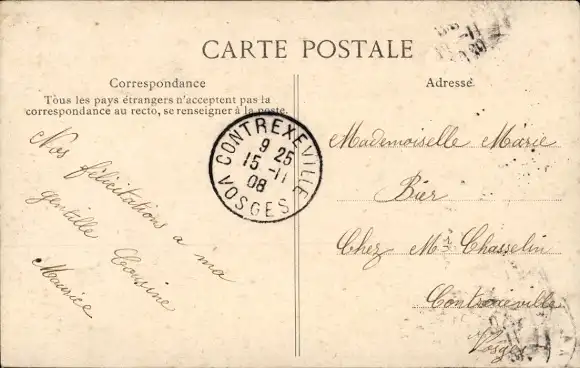 CARTE POSTALE
Correspondance
Tous les pays étrangers n'acceptent pas la
correspondance au recto, se renseigner à la poste.
Nos félicitations a ma
gentille Cousine
Maurice
CONTREXEVILLE
9 25
15 -11
08
VOSGES
Adresse
Mademoiselle Marie
Bier
Chez Mr Chasselin
Contrexéville
Vosges